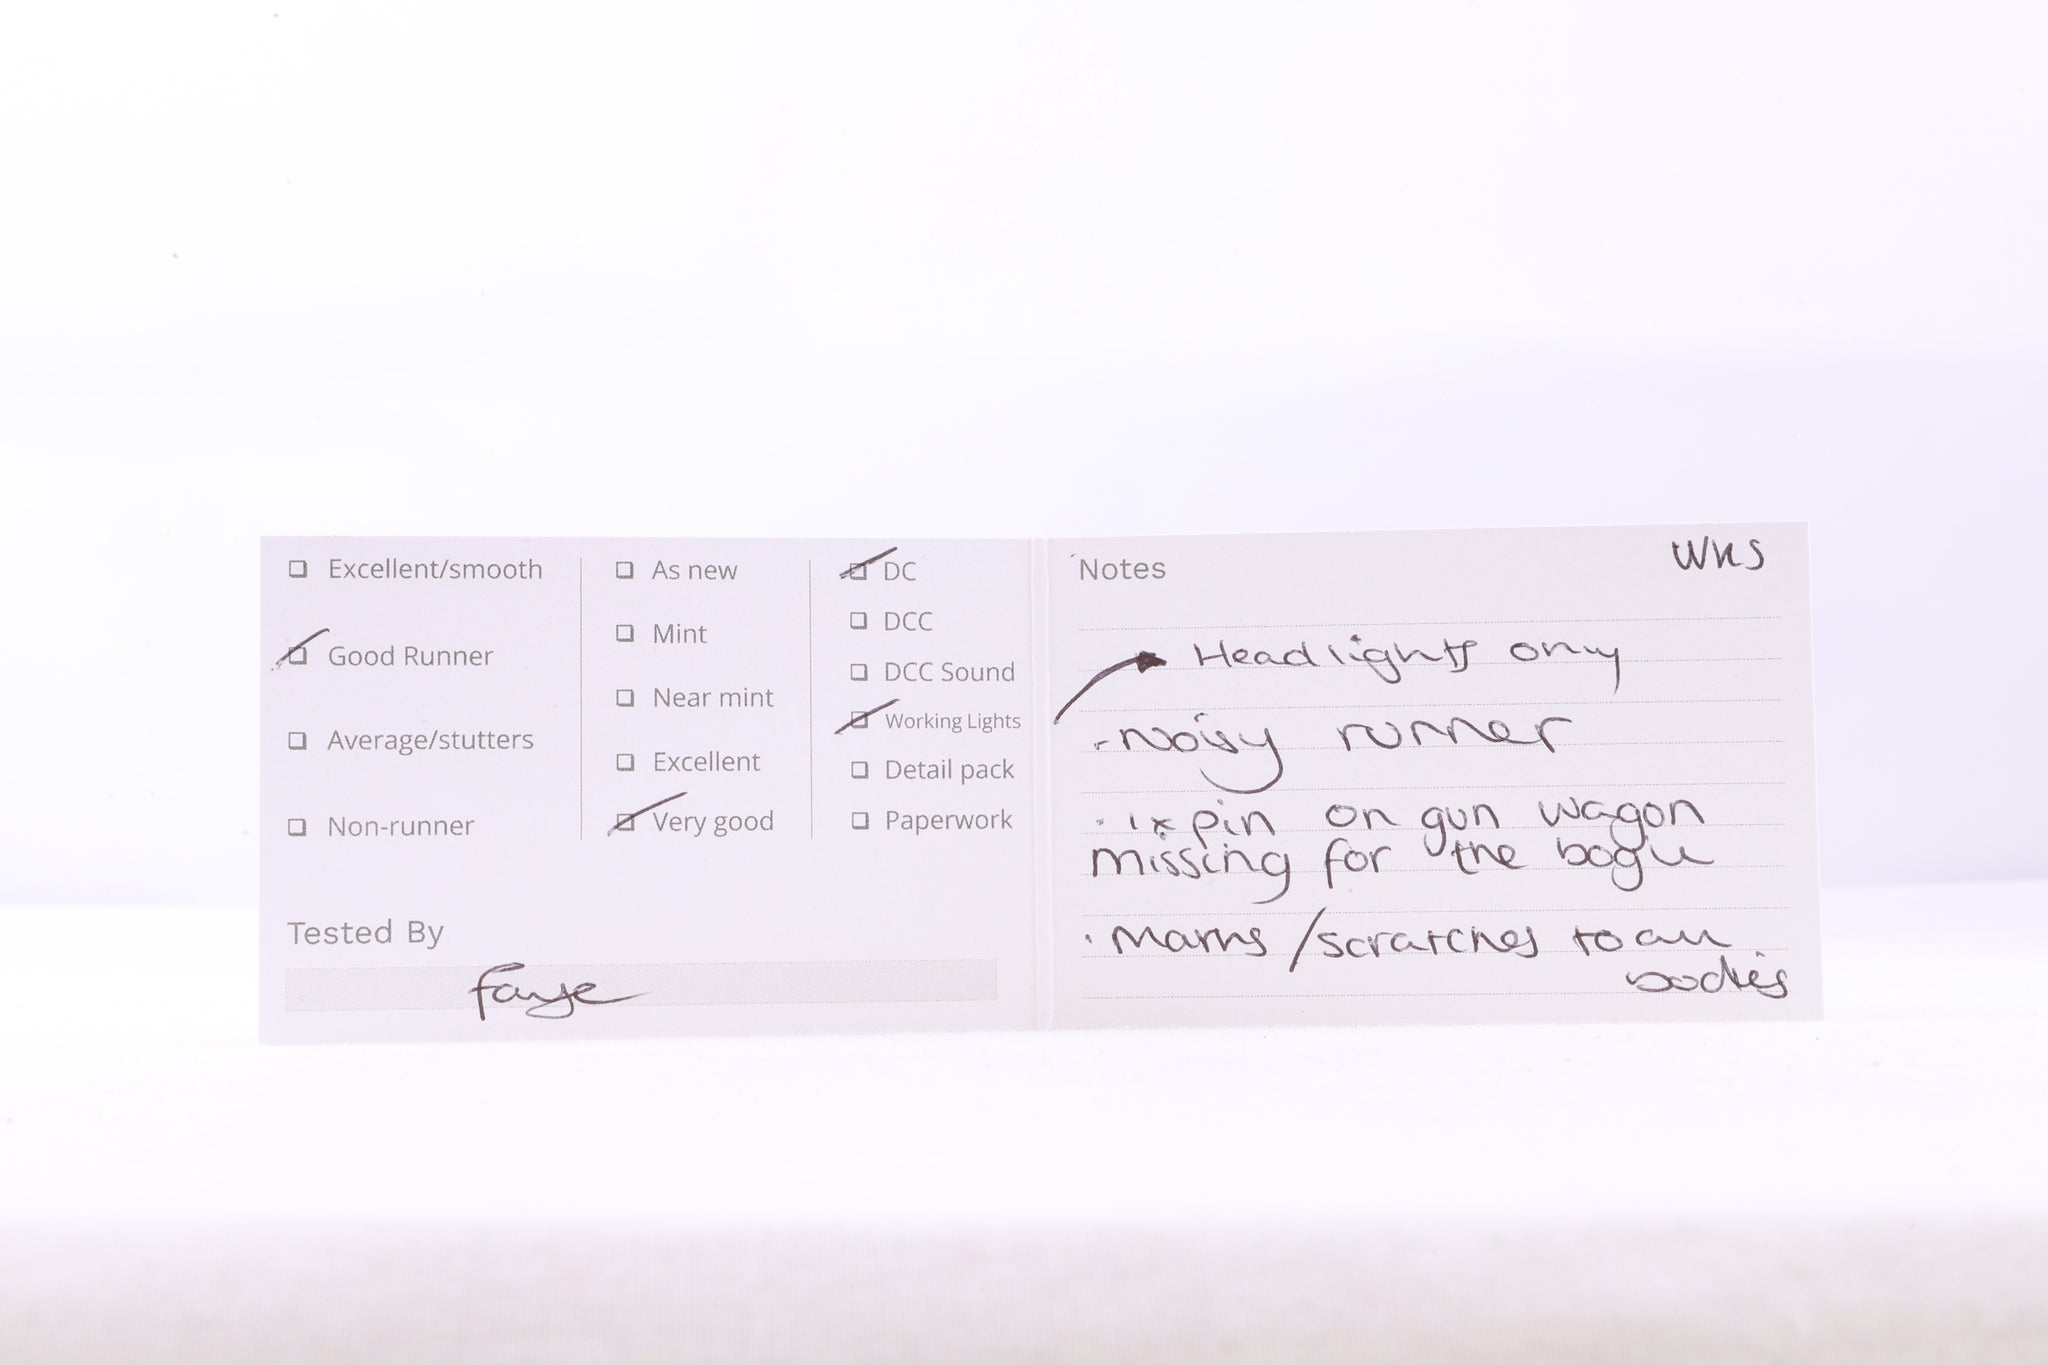 Excellent/smooth
Good Runner
Average/stutters
Non-runner
As new
Mint
Near mint
Excellent
Very good
DC
DCC
DCC Sound
Working Lights
Detail pack
Paperwork
Tested By
Faye
Notes
WKS
Headlights only
- Noisy runner
· 1x pin on gun wagon
missing for the bogie
· Marks/scratches to all
bodies